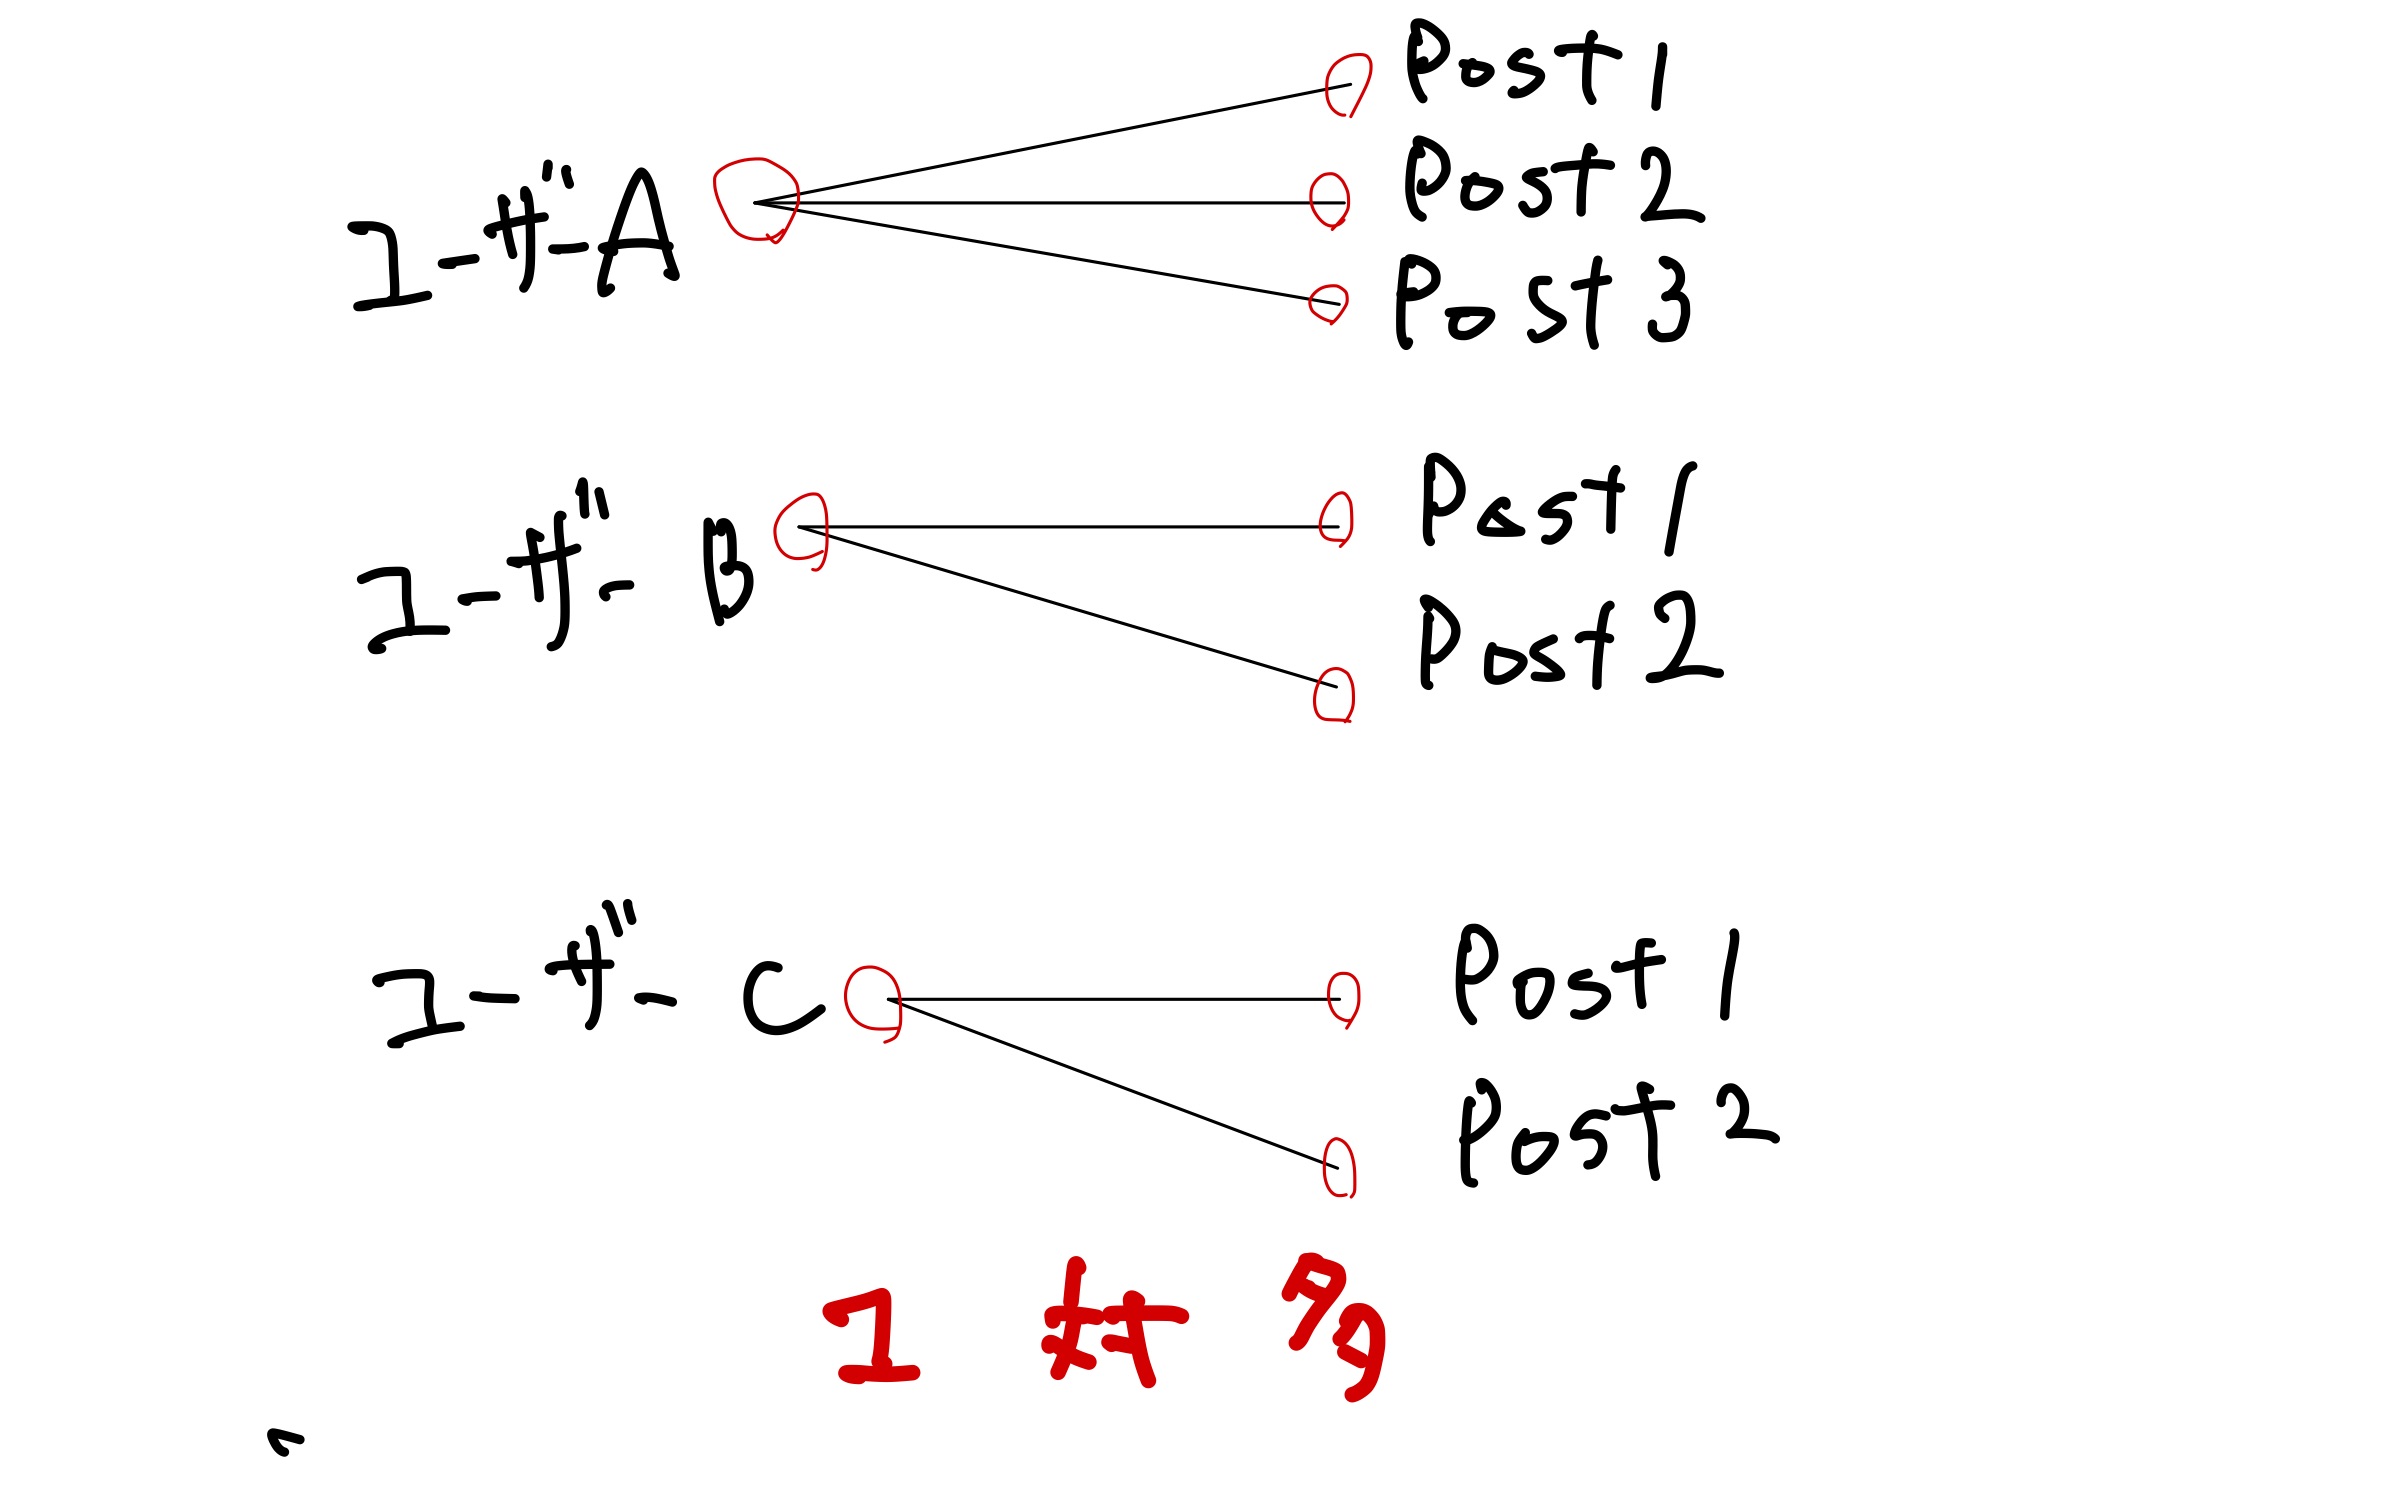 ユーザーA
Post 1
Post 2
Post 3
ユーザーB
Post 1
Post 2
ユーザーC
Post 1
Post 2
1 対 多